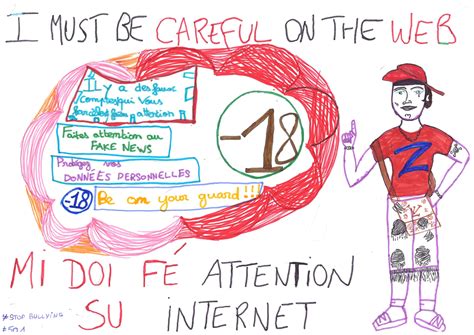 I MUST BE CAREFUL ON THE WEB
IL y a des faux
comptes qui vous
attention
Faites attention au
FAKE NEWS
Protégez vos
DONNÉES PERSONNELLES
-18 Be on your guard!!!
-18
Z
MI DOI FÉ ATTENTION
SU INTERNET
#STOP BULLYING